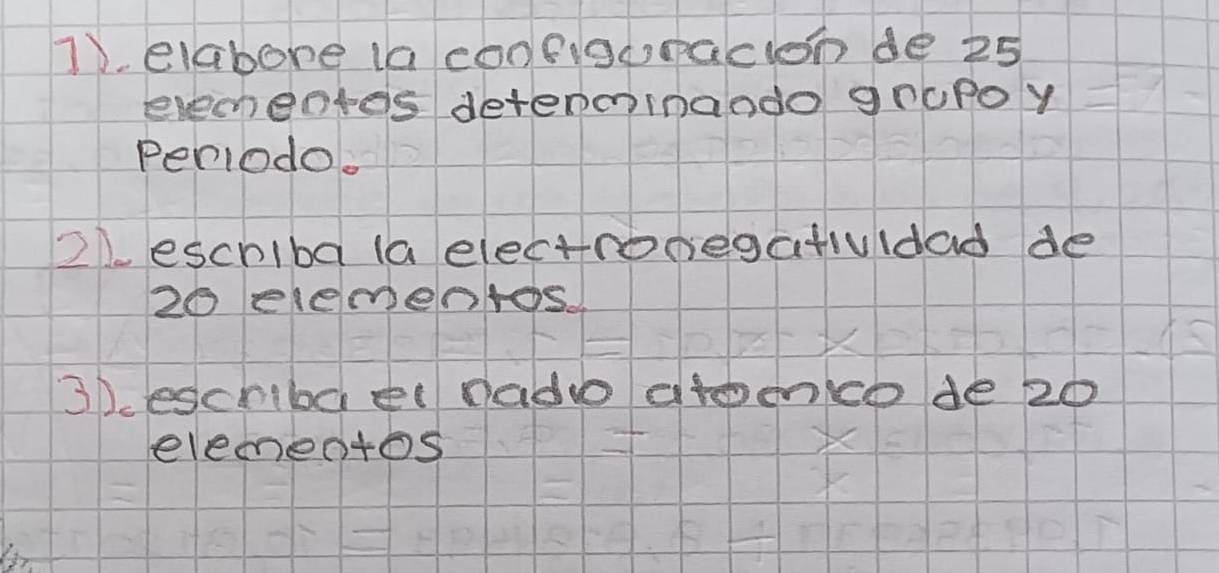 1). elabore la configuración de 25
elementos determinando grupo y
Periodo.
2). escriba la electronegatividad de
20 elementos.
3). escriba el radio atomico de 20
elementos